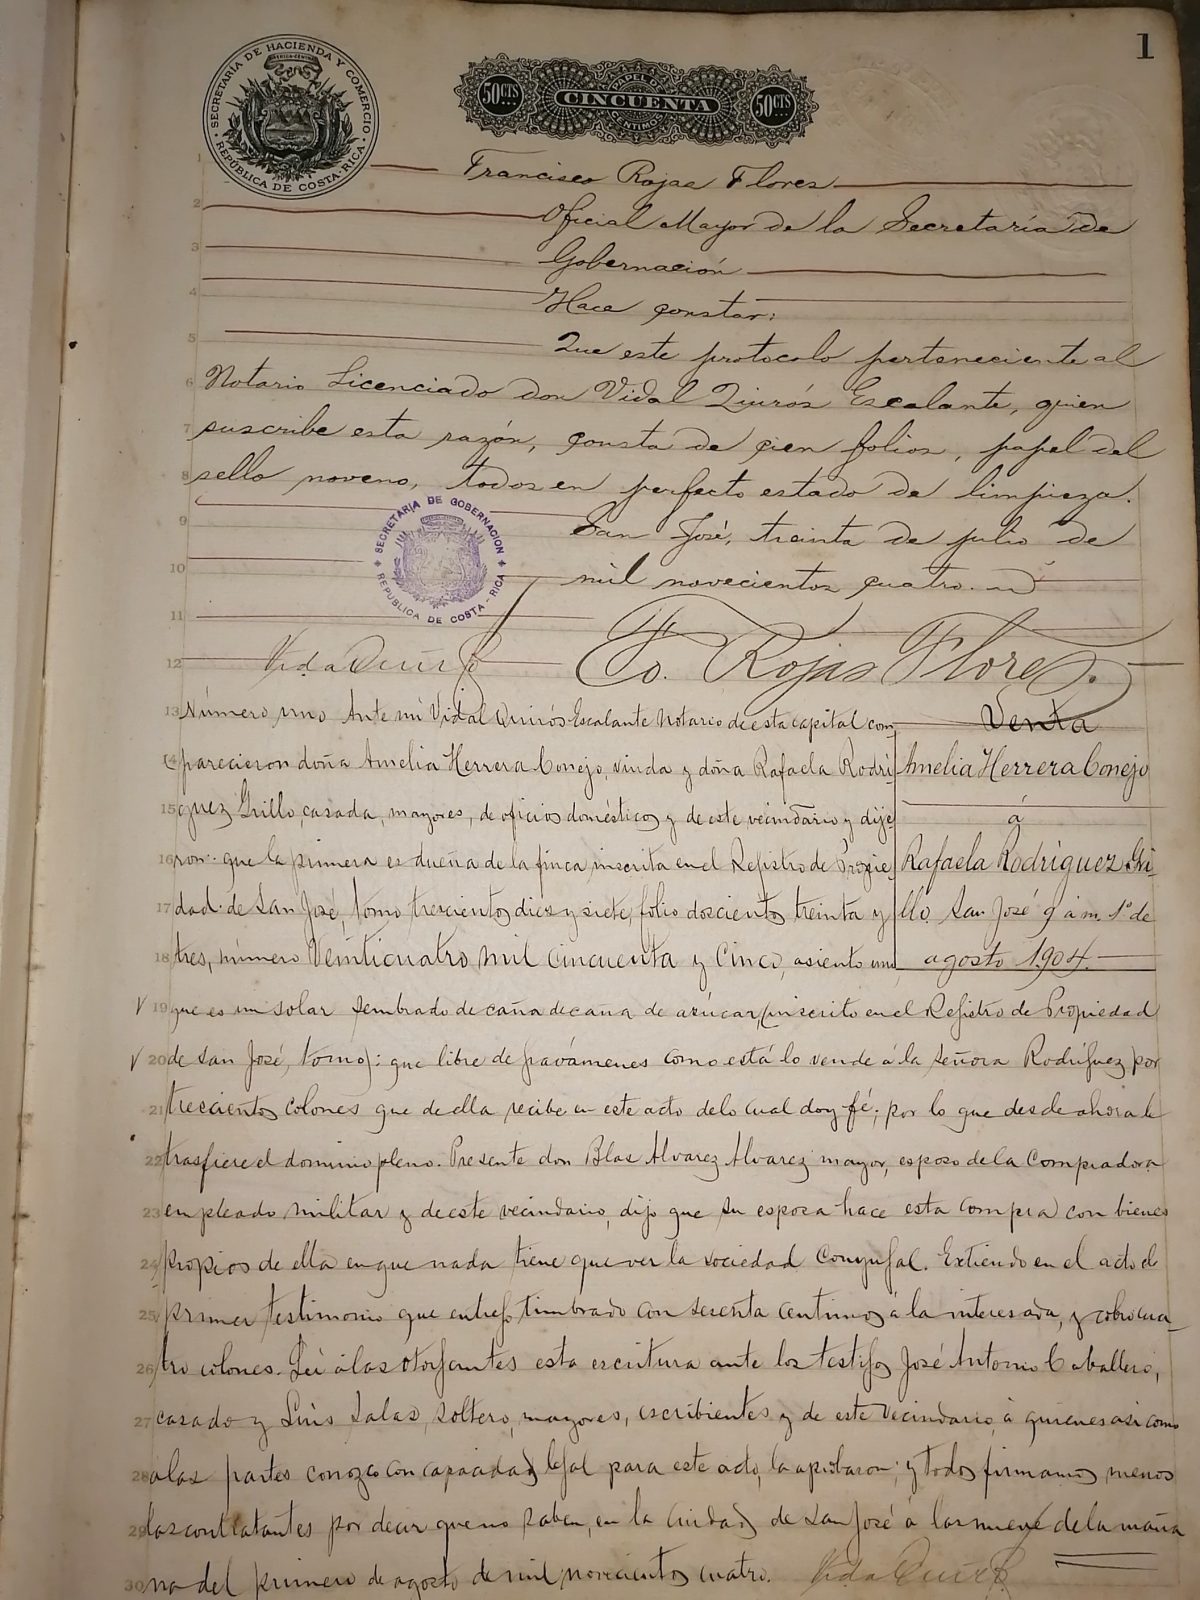 1
SECRETARIA DE HACIENDA Y COMERCIO
REPÚBLICA DE COSTA-RICA
50CTS PAPEL DE CINCUENTA CENTIMOS 50CTS
1 Francisco Rojas Flores
2 Oficial Mayor de la Secretaría de
3 Gobernación
4 Hace constar:
5 Que este protocolo perteneciente al
6 Notario Licenciado don Vidal Quirós Escalante, quien
7 suscribe esta razón, consta de cien folios, papel del
8 sello noveno, todos en perfecto estado de limpieza.
SECRETARIA DE GOBERNACION
REPUBLICA DE COSTA-RICA
9 San José, treinta de julio de
10 mil novecientos cuatro.
11
12 Vidal Quirós Fo. Rojas Flores.
13 Número uno Ante mi Vidal Quirós Escalante Notario de esta capital com
14 parecieron doña Amelia Herrera Conejo, viuda y doña Rafaela Rodrí
15 guez Grillo, casada, mayores, de oficios domésticos y de este vecindario y dije
16 ron: que la primera es dueña de la finca inscrita en el Registro de Propie
17 dad de San José, tomo trescientos diez y siete, folio doscientos treinta y
18 tres, número veinticuatro mil cincuenta y cinco, asiento uno
Venta
Amelia Herrera Conejo
á
Rafaela Rodríguez Gri-
llo. San José 9 a m. 1º de
agosto 1904.
19 que es un solar sembrado de caña de caña de azúcar, (inscrito en el Registro de Propiedad
20 de San José, tomo): que libre de gravámenes como está lo vende á la señora Rodríguez por
21 trescientos colones que de ella recibe en este acto de lo cual doy fé; por lo que desde ahora le
22 trasfiere el dominio pleno. Presente don Blas Alvarez Alvarez mayor, esposo de la compradora
23 empleado militar y de este vecindario, dijo que su esposa hace esta compra con bienes
24 propios de ella en que nada tiene que ver la sociedad conyugal. Extiendo en el acto el
25 primer testimonio que entrego timbrado con sesenta centimos á la interesada, y cobro cua-
26 tro colones. Leí á las otorgantes esta escritura ante los testigos José Antonio Caballero,
27 casado y Luis Salas soltero, mayores, escribientes y de este vecindario, á quienes asi como
28 á las partes conozco con capacidad legal para este acto, la aprobaron; y todos firmamos, menos
29 las contratantes por decir que no saben, en la ciudad de San José á las nueve de la maña
30 na del primero de agosto de mil novecientos cuatro. Vidal Quirós